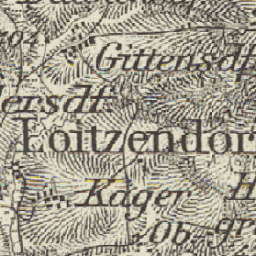 Gittensdf
ersdt
Loitzendor
Kager
Ob.
gr